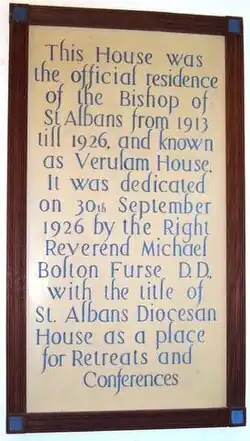 This House was
the official residence
of the Bishop of
St Albans from 1913
till 1926, and known
as Verulam House.
It was dedicated
on 30th September
1926 by the Right
Reverend Michael
Bolton Furse, D.D.
with the title of
St. Albans Diocesan
House as a place
for Retreats and
Conferences